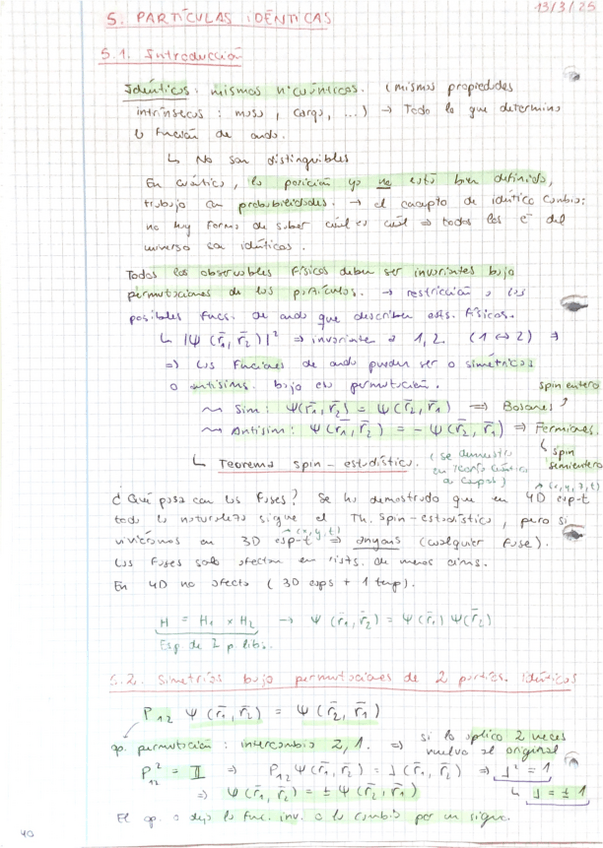 13/3/25
5. PARTÍCULAS IDÉNTICAS
5.1. Introducción
Idénticas: mismos nº cuánticos. (mismas propiedades
intrínsecas: masa, carga, ...) → Todo lo que determina
la función de onda.
↳ No son distinguibles
En cuántica, la posición ya no está bien definida,
trabajo con probabilidades. → el concepto de idéntico cambia:
no hay forma de saber cuál es cuál ⇒ todos los e⁻ del
universo son idénticos.
Todos los observables físicos deben ser invariantes bajo
permutaciones de las partículas. → restricción a las
posibles funcs. de onda que describen ests. físicos.
↳ |Ψ(r̄₁, r̄₂)|² ⇒ invariante a 1,2. (1 ↔ 2) ⇒
⇒ Las funciones de onda pueden ser o simétricas
o antisims. bajo esa permutación.
spin entero
↝ Sim: Ψ(r̄₁, r̄₂) = Ψ(r̄₂, r̄₁) ⟹ Bosones ↗
↝ Antisim: Ψ(r̄₁, r̄₂) = - Ψ(r̄₂, r̄₁) ⇒ Fermiones.
↳ spin semientero
↳ Teorema spin-estadística. (se demuestra en teoría cuántica de campos)
(x,y,z,t)
¿Qué pasa con las fases? Se ha demostrado que en 4D esp-t
toda la naturaleza sigue el Th. spin-estadística, pero si
viviéramos en 3D esp-t (x,y,t) ⇒ anyons (cualquier fase).
Las fases solo afectan en sists. de menos dims.
En 4D no afecta (3D esps + 1 temp).
H = H₁ × H₂ → Ψ(r̄₁, r̄₂) = Ψ(r̄₁) Ψ(r̄₂)
Esp. de 2 p. libs.
5.2. Simetrías bajo permutaciones de 2 partícs. idénticas
P₁₂ Ψ(r̄₁, r̄₂) = Ψ(r̄₂, r̄₁)
op. permutación: intercambio 2,1. ⇒ si lo aplico 2 veces
vuelvo al original
P₁₂² = 𝕀 ⇒ P₁₂ Ψ(r̄₁, r̄₂) = λ(r̄₁, r̄₂) ⇒ λ² = 1
⇒ Ψ(r̄₁, r̄₂) = ± Ψ(r̄₂, r̄₁) ↳ λ = ± 1
El op. o deja la func. inv. o la cambia por un signo.
40